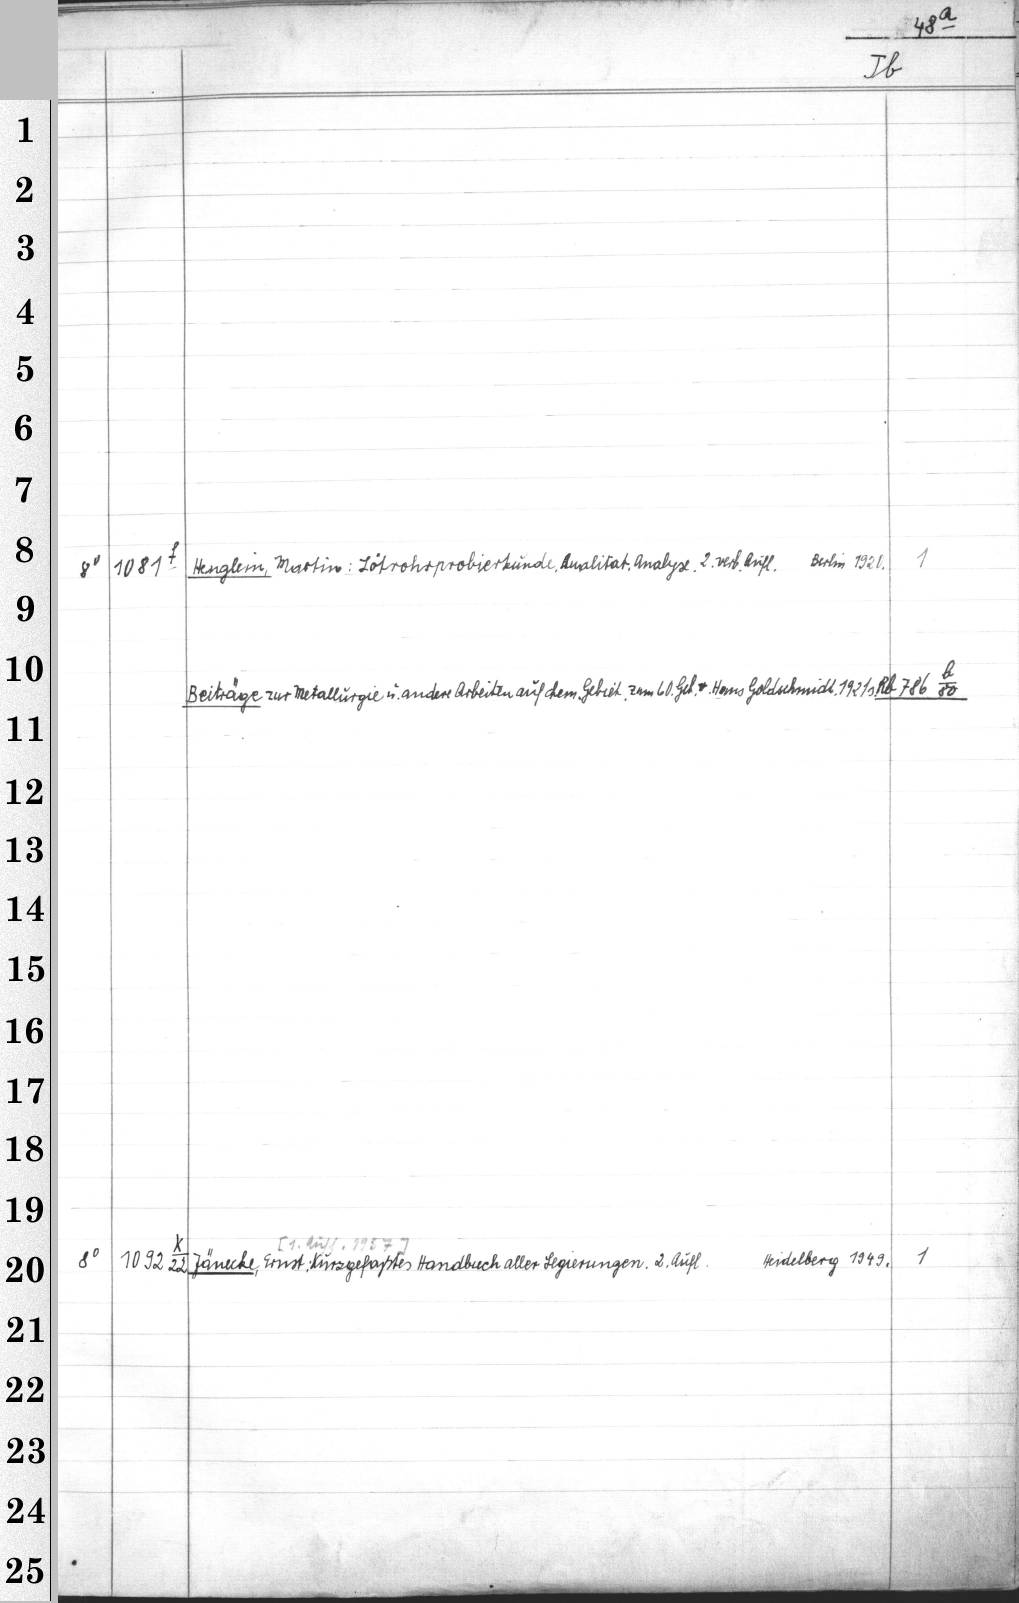 48a
Ib
1
2
3
4
5
6
7
8
8° 1081 f Henglein, Martin: Lötrohrprobierkunde. Qualitat. Analyse. 2. verb. Aufl. Berlin 1920. 1
9
10
Beiträge zur Metallurgie u. andere Arbeiten auf chem. Gebiet. zum 60. Geb. v. Hans Goldschmidt. 1921 s. Rb 786 b/80
11
12
13
14
15
16
17
18
19
[1. Aufl. 1937]
20
8° 1092 K/22 Jänecke, Ernst: Kurzgefaßtes Handbuch aller Legierungen. 2. Aufl. Heidelberg 1949. 1
21
22
23
24
25